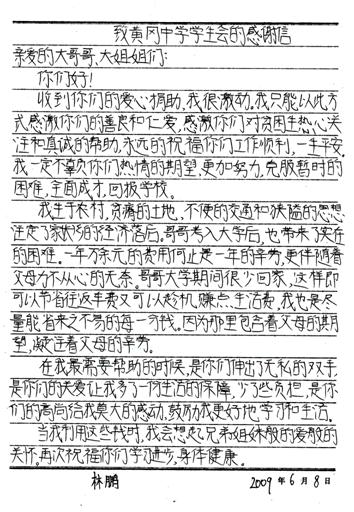 致黄冈中学学生会的感谢信
亲爱的大哥哥、大姐姐们:
你们好!
收到你们的爱心捐助,我很激动,我只能以此方
式感激你们的善良和仁爱,感激你们对贫困生热心关
注和真诚的帮助,永远的祝福你们工作顺利,一生平安。
我一定不辜负你们热情的期望,更加努力,克服暂时的
困难,全面成才,回报学校。
我生于农村,贫瘠的土地,不便的交通和狭隘的思想
注定了家庭的经济落后。哥哥考入大学后,也带来了实在
的困难。一年万余元的费用何止是一年的辛劳,更伴随着
父母力不从心的无奈。哥哥大学期间很少回家,这样即
可以节省往返车费又可以趁机赚点生活费,我也是尽
量能省来之不易的每一分钱。因为那里包含着父母的期
望,凝注着父母的辛劳。
在我最需要帮助的时候,是你们伸出了无私的双手,
是你们的关爱让我多了一份生活的保障,少了些负担,是你
们的高尚给我莫大的感动,鼓励我更好地学习和生活。
当我利用这些钱时,我会想起兄弟姐妹般的爱般的
关怀。再次祝福你们学习进步,身体健康。
林鹏 2009年6月8日